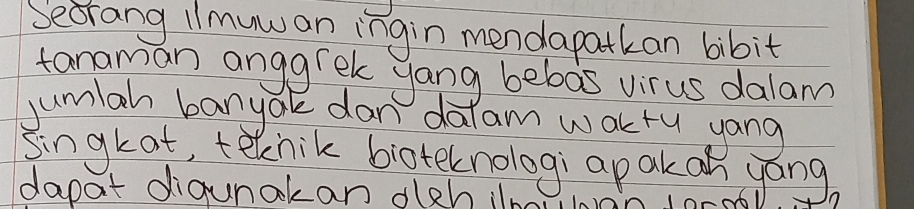 Seorang ilmuwan ingin mendapatkan bibit
tanaman anggrek yang bebas virus dalam
jumlah banyak dan dalam waktu yang
singkat, teknik bioteknologi apakah yang
dapat digunakan oleh ilmuwan